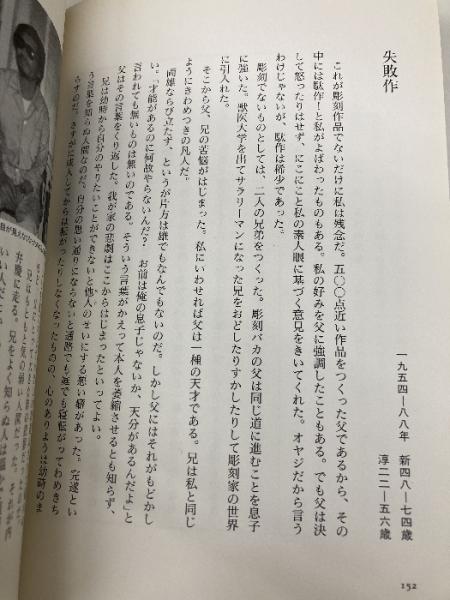 失敗作
一九五四-八八年　新四八-七四歳
淳二二-五六歳
これが彫刻作品でないだけに私は残念だ。五〇〇点近い作品をつくった父であるから、その
中には駄作！と私がよばわったものもある。私の好みを父に強調したこともある。でも父は決
して怒ったりはせず、にこにこと私の素人眼に基づく意見をきいてくれた。オヤジだから言う
わけじゃないが、駄作は稀少であった。
彫刻でないものとしては、二人の兄弟をつくった。彫刻バカの父は同じ道に進むことを息子
に強いた。獣医大学を出てサラリーマンになった兄をおどしたりすかしたりして彫刻家の世界
に引入れた。
そこから父、兄の苦悩がはじまった。私にいわせれば父は一種の天才である。兄は私と同じ
ようにきわめつきの凡人だ。
両雄ならび立たず、というが片方は雄でもなんでもないのだ。しかし父にはそれがもどかし
い。「才能があるのに何故やらないんだ？　お前は俺の息子じゃないか、天分があるんだよ」と
言われても無いものは無いのである。そういう言葉がかえって本人を萎縮させるとも知らず、
父はその言葉をくり返した。我が家の悲劇はここからはじまったといってよい。
兄は幼時から自分のやりたいことができないと他人のせいにする悪い癖があった。「完遂とい
う言葉を知らぬ人間なのだ。自分の思い通りにならないと道路でも庭でも寝転がってわめきち
らすのだ。さすがに成人してからは転がったりしなくなったものの、心のありようは幼時のま
弁慶に走る。兄をよく知らぬ人は
152